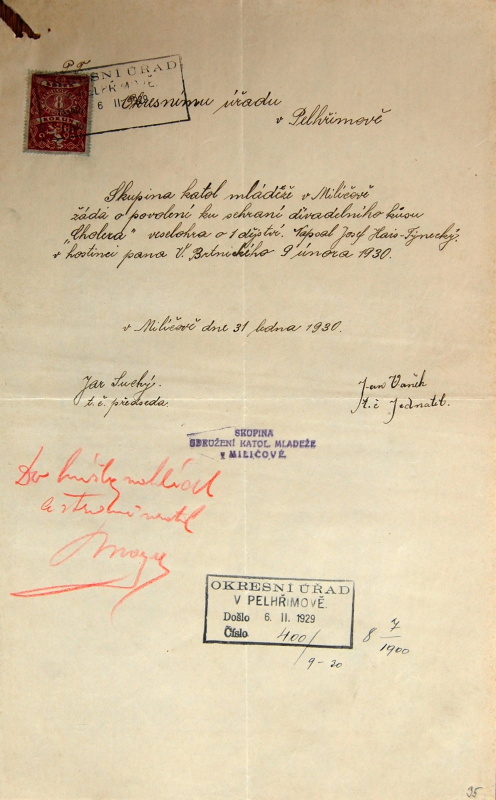 P. T.
OKRESNÍ ÚŘAD
V PELHŘIMOVĚ.
6 II. 1929
8
KORUN
Okresnímu úřadu
v Pelhřimově
Skupina katol mládeže v Milíčově
žádá o povolení ku sehraní divadelního kusu
„Cholera" veselohra o 1 dějství. Napsal Josef Hais-Týnecký,
v hostinci pana V. Brtnického 9 února 1930.
v Milíčově dne 31 ledna 1930.
Jar Suchý.
t. č. předseda.
Jan Vaněk
t. č. Jednatel.
SKUPINA
SDRUŽENÍ KATOL. MLADEŽE
v MILIČOVĚ.
OKRESNÍ ÚŘAD
V PELHŘIMOVĚ.
Došlo 6. II. 1929
Číslo 400/
9-30
8 7/1900
95